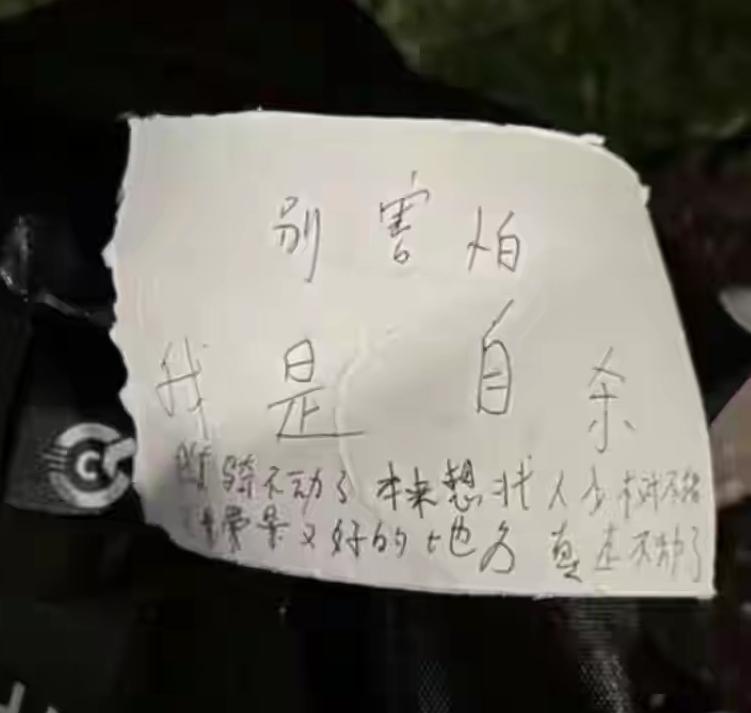 别害怕
我是自杀
骑不动了 本来想找人少
景又好的地方 真 不动了